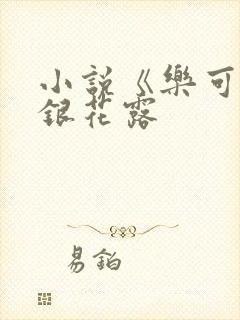 小説《樂可
銀花露
易鉑